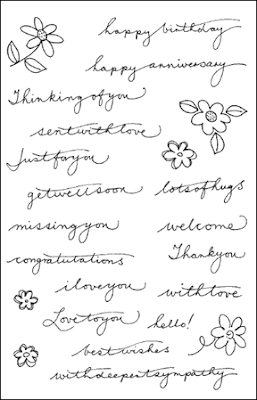 happy birthday
happy anniversary
Thinking of you
sent with love
Just for you
get well soon
lots of hugs
missing you
welcome
congratulations
Thank you
i love you
with love
Love to you
hello!
best wishes
with deepest sympathy